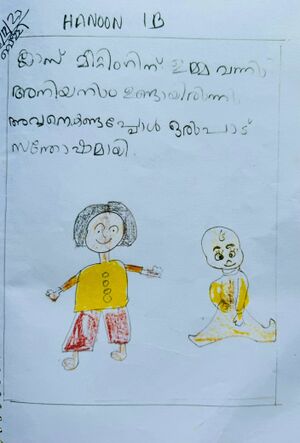 HANOON 1B
ക്ലാസ് മീറ്റിംഗിന് ഉമ്മ വന്നു
അനിയനും ഉണ്ടായിരുന്നു.
അവനെകണ്ടപ്പോൾ ഒരുപാട്
സന്തോഷമായി.